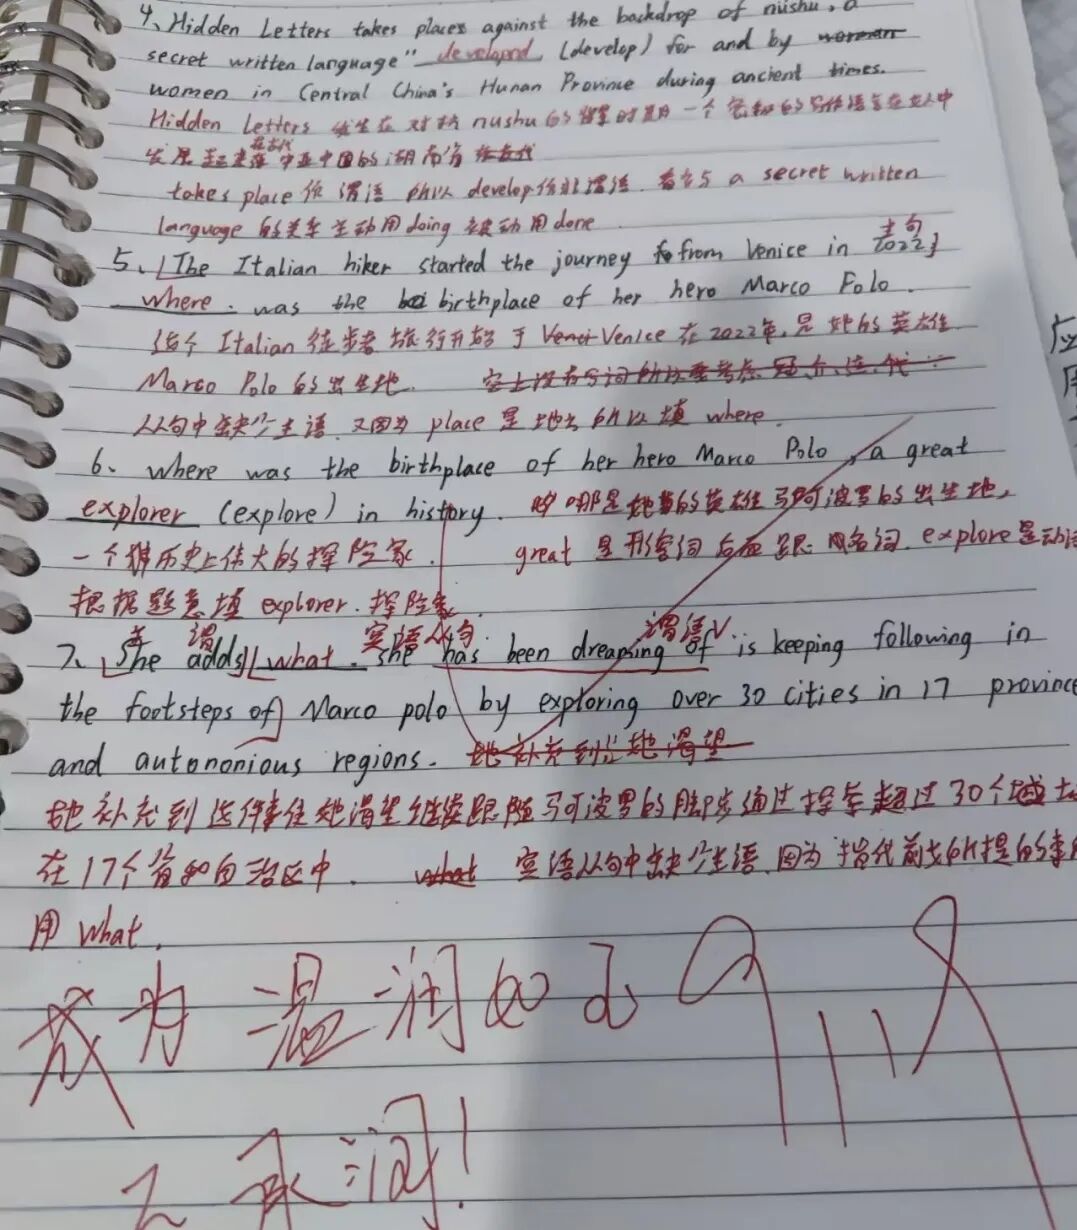 4、Hidden Letters takes places against the backdrop of nushu, a
secret written language" developed (develop) for and by women
women in Central China's Hunan Province during ancient times.
Hidden Letters 发生在对抗 nushu 的背景时期一个 的写作语言在女人中
发展起来在古代中亚中国的湖南省
takes place 作谓语 所以 develop作非谓语. 看它与 a secret written
language 的关系 主动用doing 被动用done
5、The Italian hiker started the journey from Venice in 2022, 主句
where was the birthplace of her hero Marco Polo.
这个 Italian 徒步者旅行开始于 Venice 在2022年,是她的英雄
Marco Polo 的出生地. 空上没有写词所以要考虑 冠、介、连、代
从句中缺少主语 又因为 place 是地点所以填 where.
6、where was the birthplace of her hero Marco Polo, a great
explorer (explore) in history. 哪是她的英雄马可波罗的出生地,
一个历史上伟大的探险家. great 是形容词后面跟名词. explore是动词
根据题意填 explorer. 探险家.
主 谓 宾语从句 谓语V
7、She adds what she has been dreaming of is keeping following in
the footsteps of Marco polo by exploring over 30 cities in 17 province
and autononious regions. 她补充到 她渴望
她补充到这件事住她渴望继续跟随马可波罗的脚步通过探索超过30个城市
在17个省和自治区中. what 宾语从句中缺少主语.因为指代前面所提的事
用 what.
成为温润如玉
承润!